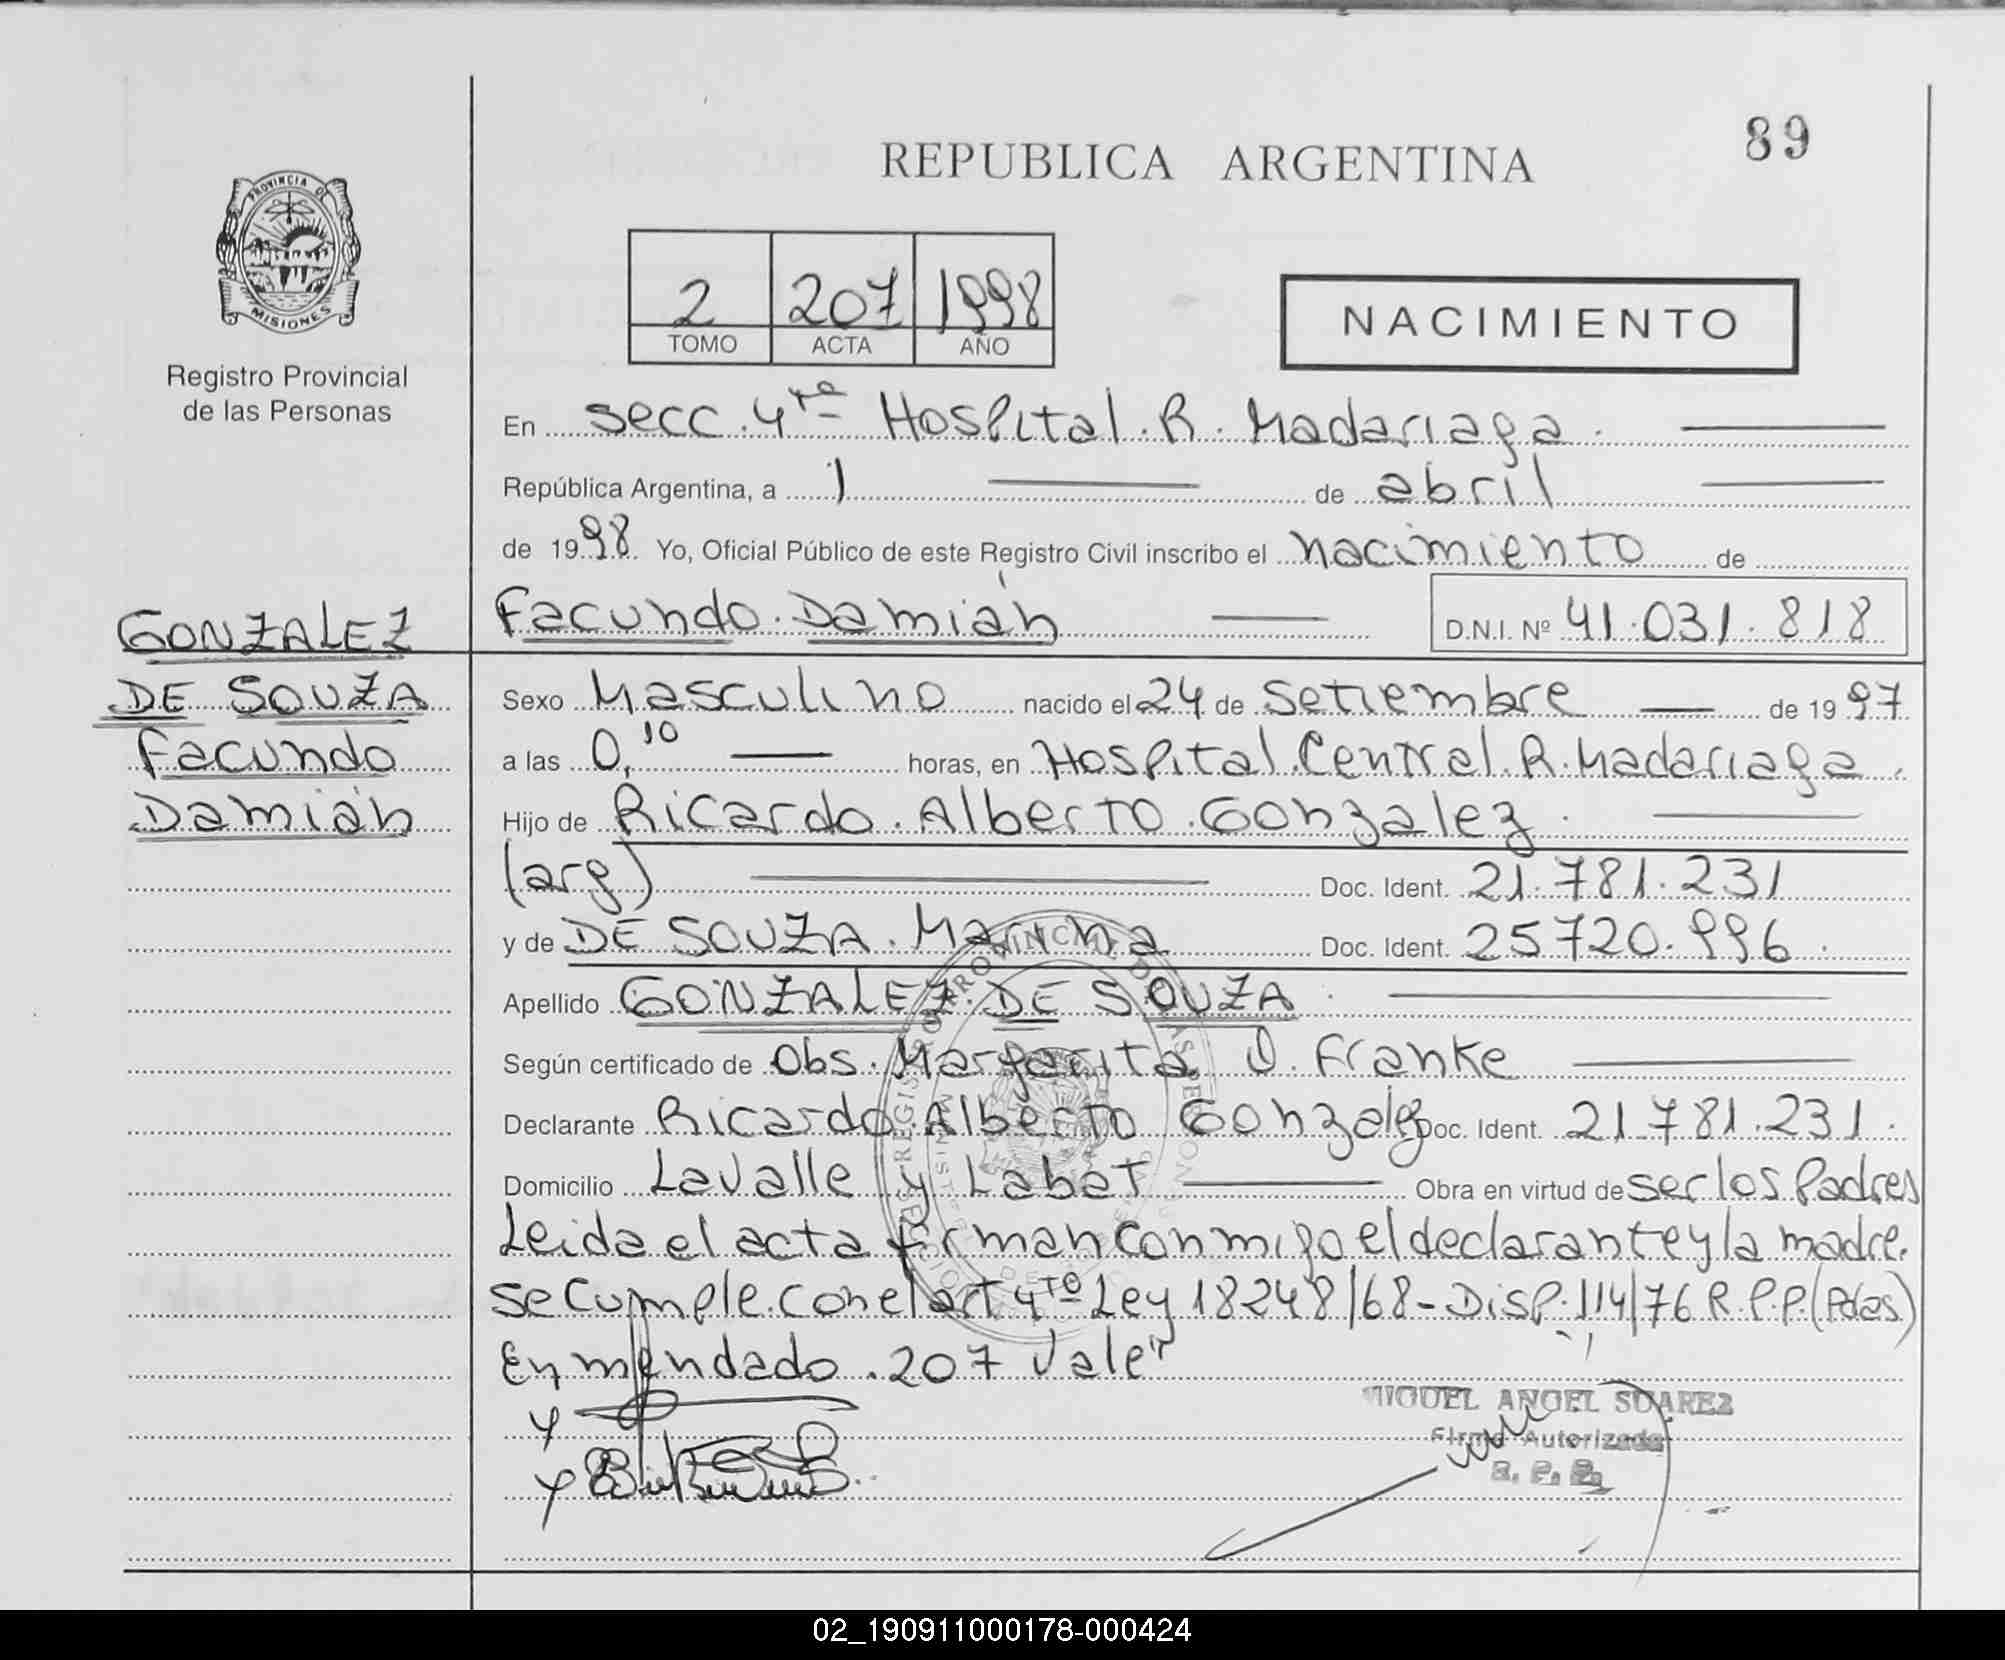 89
REPUBLICA ARGENTINA
PROVINCIA DE
MISIONES
Registro Provincial
de las Personas
2 207 1998
TOMO ACTA AÑO
NACIMIENTO
En secc. 4ta Hospital. R. Madariaga.
República Argentina, a 1 de abril
de 1998. Yo, Oficial Público de este Registro Civil inscribo el nacimiento de
Facundo. Damián D.N.I. Nº 41.031.818
GONZALEZ
DE SOUZA
Facundo
Damián
Sexo Masculino nacido el 24 de Setiembre de 1997
a las 0,10 horas, en Hospital Central R. Madariaga.
Hijo de Ricardo Alberto Gonzalez.
(arg) Doc. Ident. 21.781.231
y de DE SOUZA. Marina Doc. Ident. 25720.996.
Apellido GONZALEZ DE SOUZA.
Según certificado de Obs. Margarita O. Franke
Declarante Ricardo Alberto Gonzalez Doc. Ident. 21.781.231.
Domicilio Lavalle y Labat Obra en virtud de ser los Padres
Leida el acta firman conmigo el declarante y la madre.
se cumple con el art 4to Ley 18248/68 - Disp. 114/76 R.P.P. (Pdas)
Enmendado. 207 Vale"
MIGUEL ANGEL SUAREZ
Firma Autorizada
R. P. P.
02_190911000178-000424